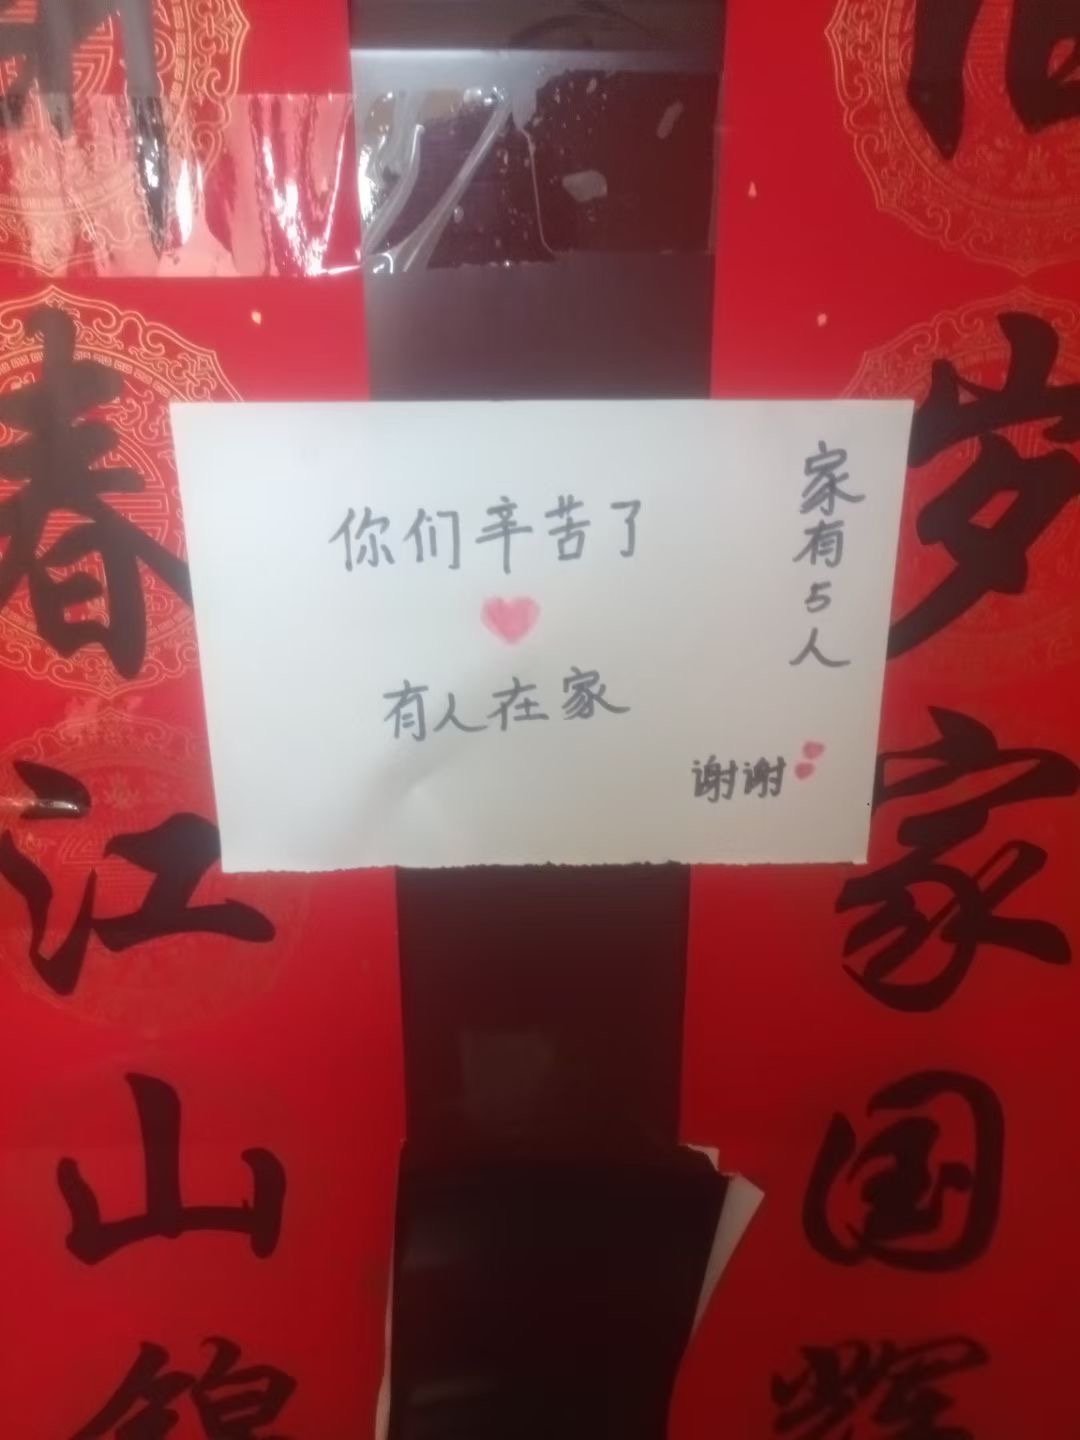 你们辛苦了
有人在家
家有5人
谢谢
春江山锦
岁家国辉